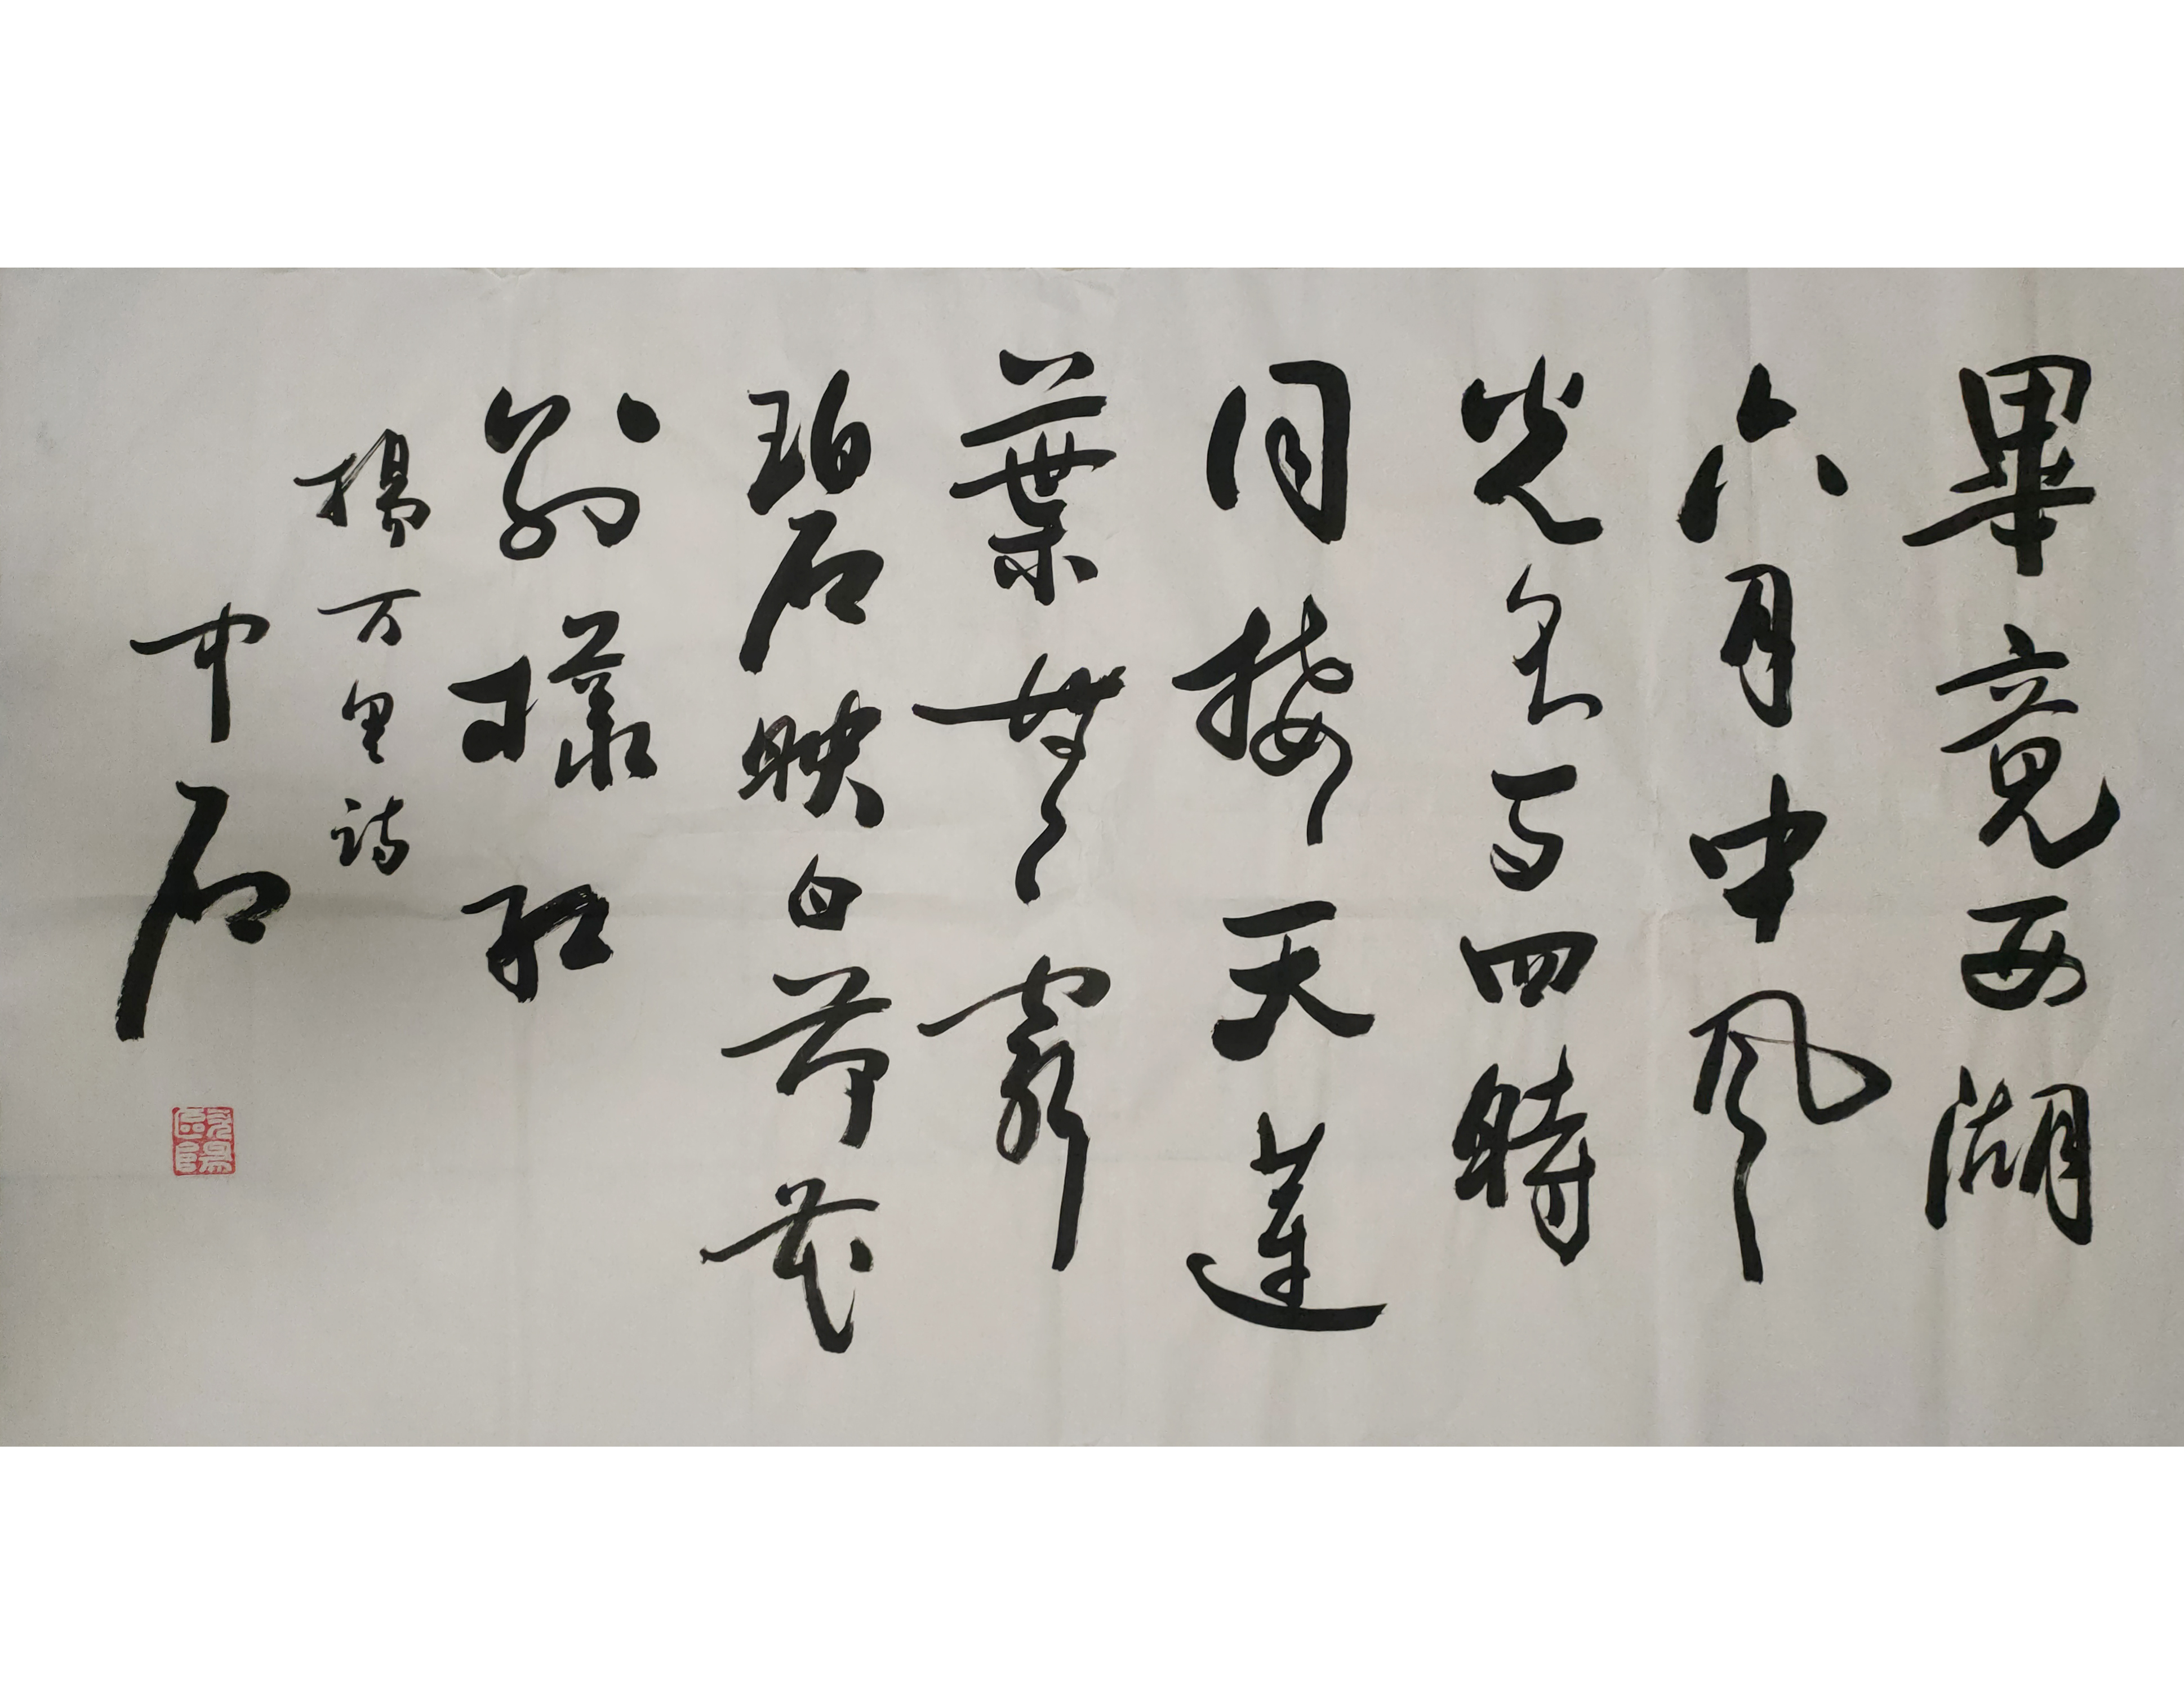 畢竟西湖
六月中風
光不与四時
同接天蓮
葉無窮
碧映日荷花
別樣紅
楊万里詩
中石
歐陽